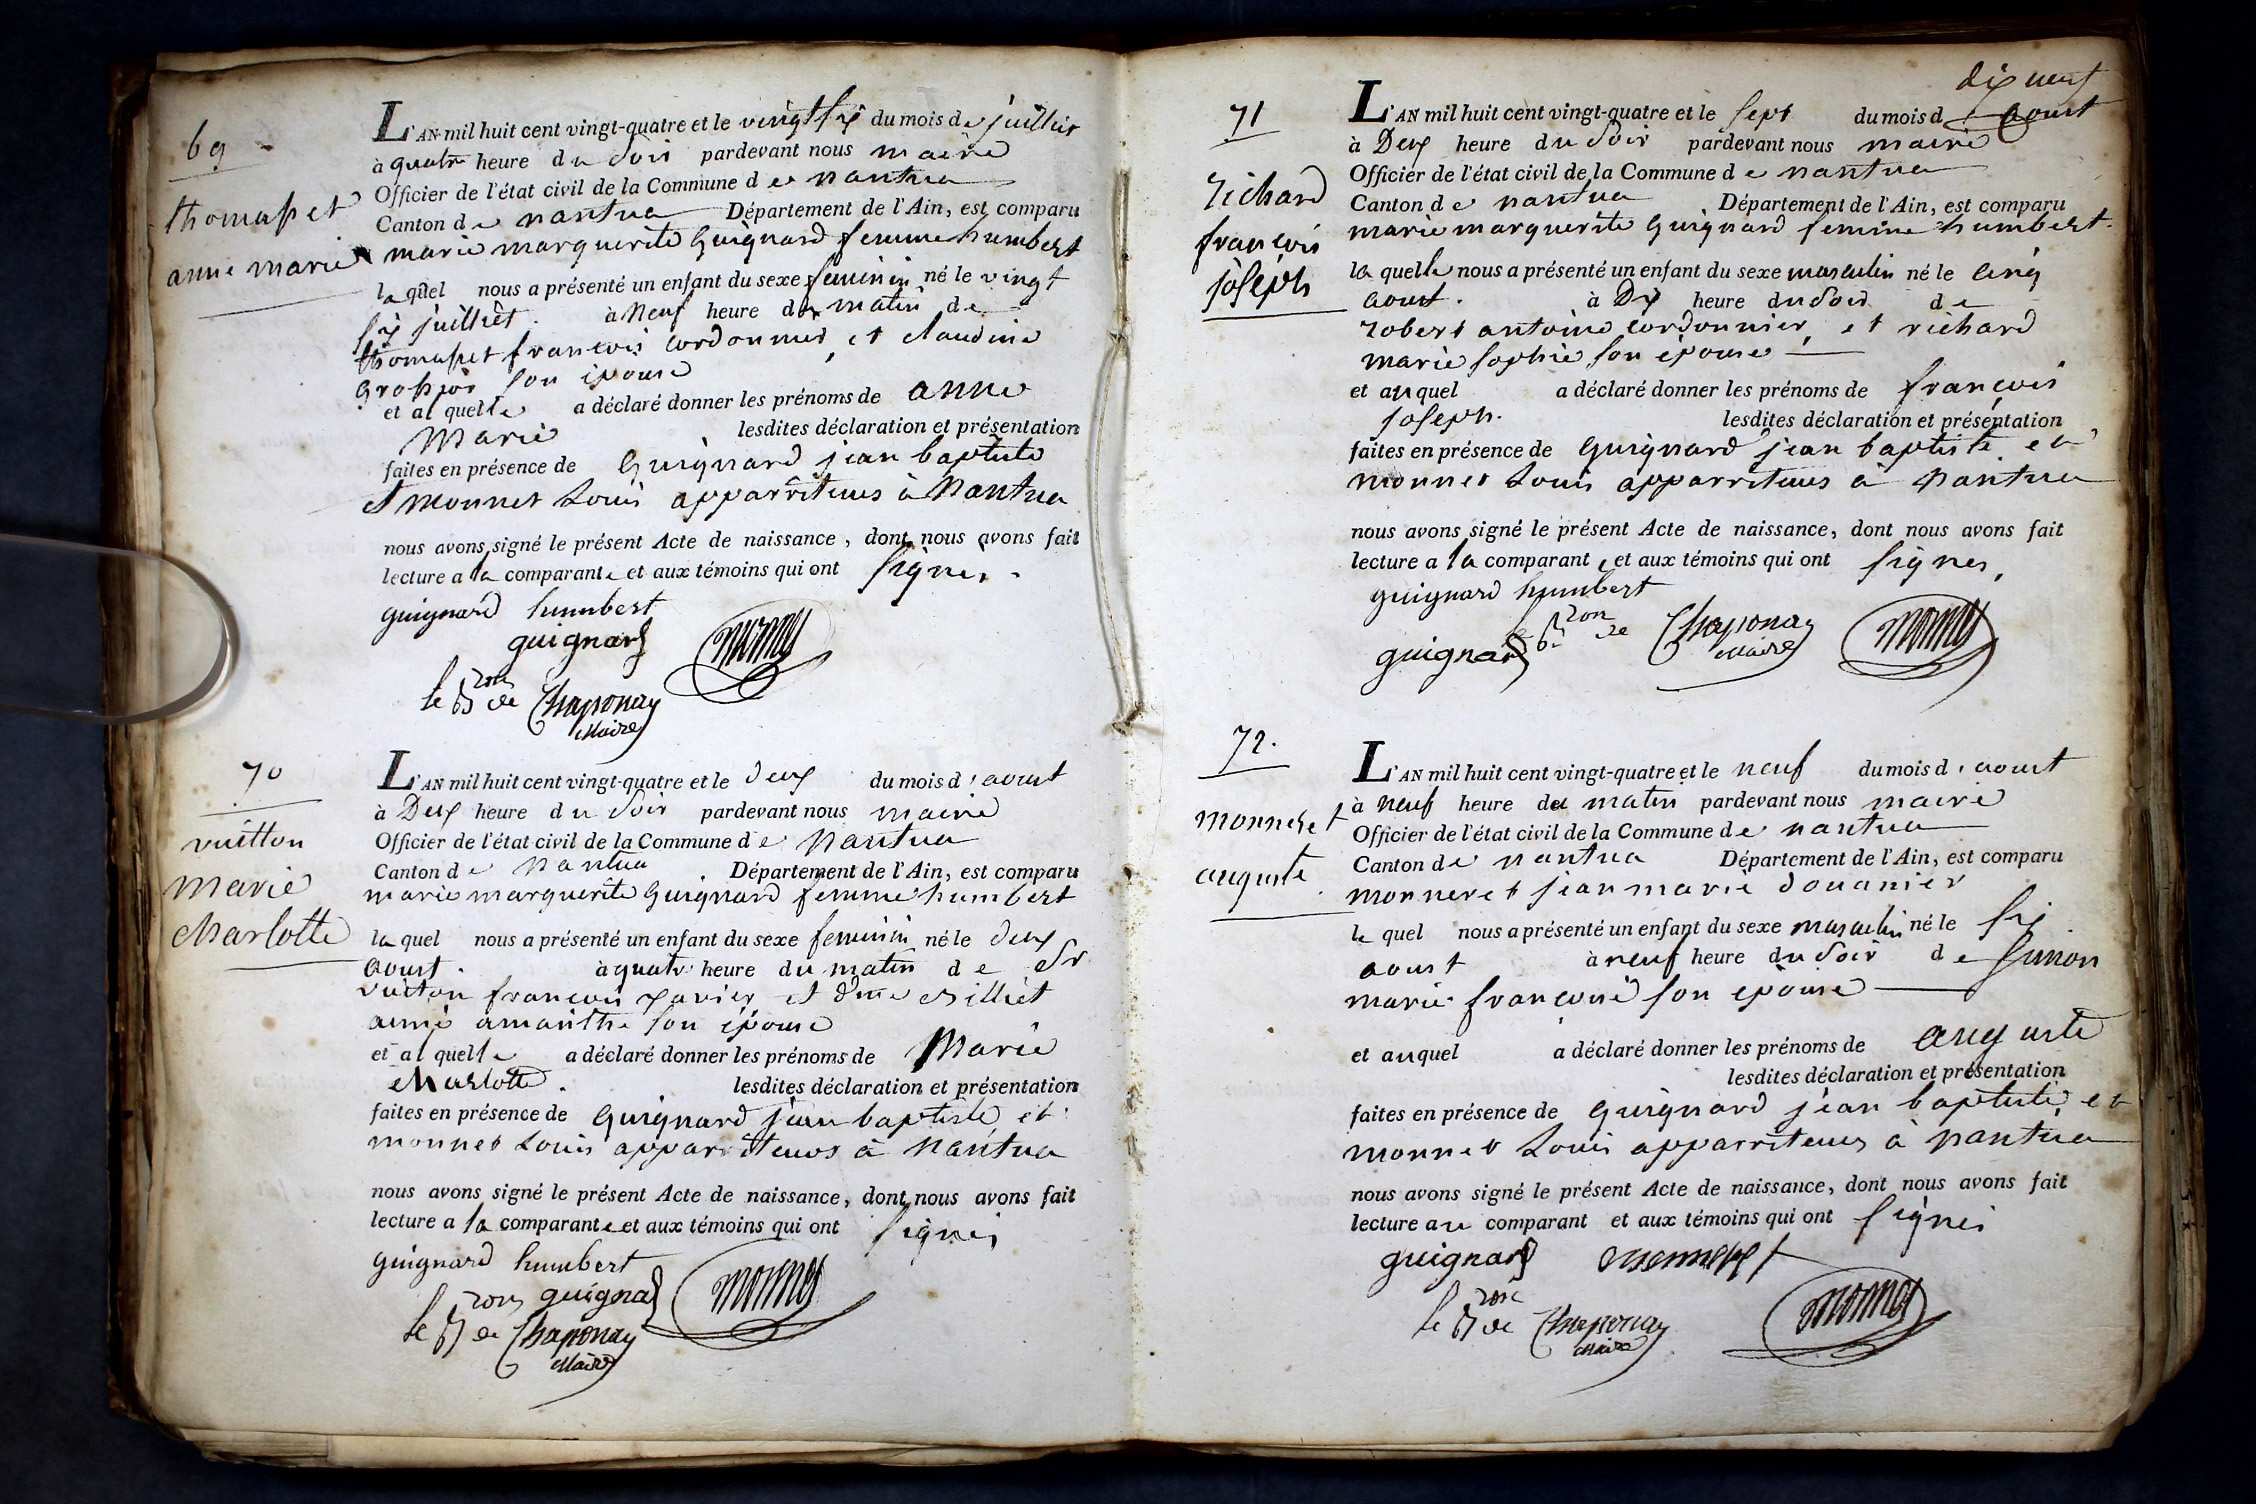 69
thomasset
anne marie
L'AN mil huit cent vingt-quatre et le vingt six du mois de juillet
à quatre heure du Soir pardevant nous maire
Officier de l'état civil de la Commune de nantua
Canton de nantua Département de l'Ain, est comparu
marie marguerite Guignard femme humbert
laquel nous a présenté un enfant du sexe feminin né le vingt
six juillet. à Neuf heure du matin de
thomasset francois cordonnier, et claudine
son épouse
et a l quelle a déclaré donner les prénoms de anne
Marie lesdites déclaration et présentation
faites en présence de Guignard jean baptiste
et monnet Louis apparriteurs à Nantua
nous avons signé le présent Acte de naissance, dont nous avons fait
lecture a la comparante et aux témoins qui ont signés.
guignard humbert
guignard monnet
le Bron de Chaponay
Maire
70
vuitton
Marie
charlotte
L'AN mil huit cent vingt-quatre et le deux du mois d'aoust
à Deux heure du Soir pardevant nous maire
Officier de l'état civil de la Commune de Nantua
Canton de Nantua Département de l'Ain, est comparu
marie marguerite Guignard femme humbert
la quel nous a présenté un enfant du sexe feminin né le deux
aoust. à quatre heure du matin de Sr
vuitton francois xavier et dme
son épouse
et a l quelle a déclaré donner les prénoms de Marie
charlotte. lesdites déclaration et présentation
faites en présence de Guignard jean baptiste et
monnet Louis apparriteurs à Nantua
nous avons signé le présent Acte de naissance, dont nous avons fait
lecture a la comparante et aux témoins qui ont signés
guignard humbert
guignard monnet
le Bron de Chaponay
Maire
dix neuf
71
richard
francois
joseph
L'AN mil huit cent vingt-quatre et le sept du mois d'aoust
à Deux heure du Soir pardevant nous maire
Officier de l'état civil de la Commune de nantua
Canton de nantua Département de l'Ain, est comparu
marie marguerite Guignard femme humbert.
la quelle nous a présenté un enfant du sexe masculin né le cinq
aoust. à Dix heure du Soir de
robert antoine cordonnier, et richard
marie sophie son épouse
et auquel a déclaré donner les prénoms de françois
joseph. lesdites déclaration et présentation
faites en présence de Guignard jean baptiste et
monnet Louis apparriteurs à Nantua
nous avons signé le présent Acte de naissance, dont nous avons fait
lecture a la comparante, et aux témoins qui ont signés,
guignard humbert
guignard le Bron de Chaponay monnet
Maire
72.
monneret
auguste
L'AN mil huit cent vingt-quatre et le neuf du mois d'aoust
à neuf heure du matin pardevant nous maire
Officier de l'état civil de la Commune de nantua
Canton de nantua Département de l'Ain, est comparu
monneret jean marie douanier
le quel nous a présenté un enfant du sexe masculin né le six
aoust à neuf heure du Soir de simon
marie françoise son épouse
et auquel a déclaré donner les prénoms de auguste
lesdites déclaration et présentation
faites en présence de Guignard jean baptiste et
monnet Louis apparriteurs à nantua
nous avons signé le présent Acte de naissance, dont nous avons fait
lecture au comparant et aux témoins qui ont signés
guignard monneret
le Bron de Chaponay monnet
Maire